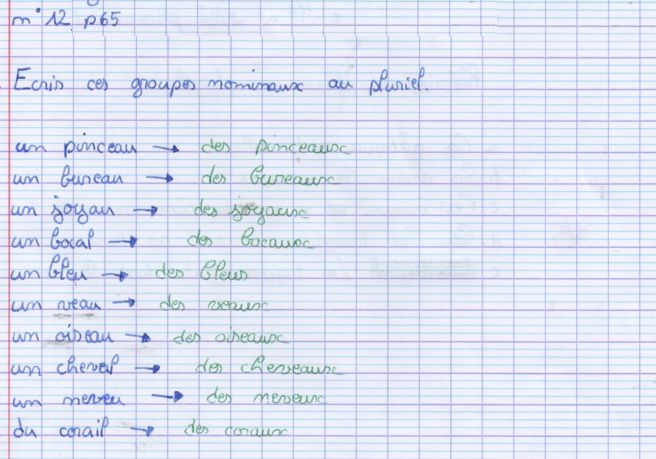 n° 12 p65
Ecris ces groupes nominaux au pluriel.
un pinceau → des pinceaux
un bureau → des bureaux
un joyau → des joyaux
un bocal → des bocaux
un bleu → des bleus
un veau → des veaux
un oiseau → des oiseaux
un cheval → des cheveaux
un neveu → des neveux
du corail → des coraux